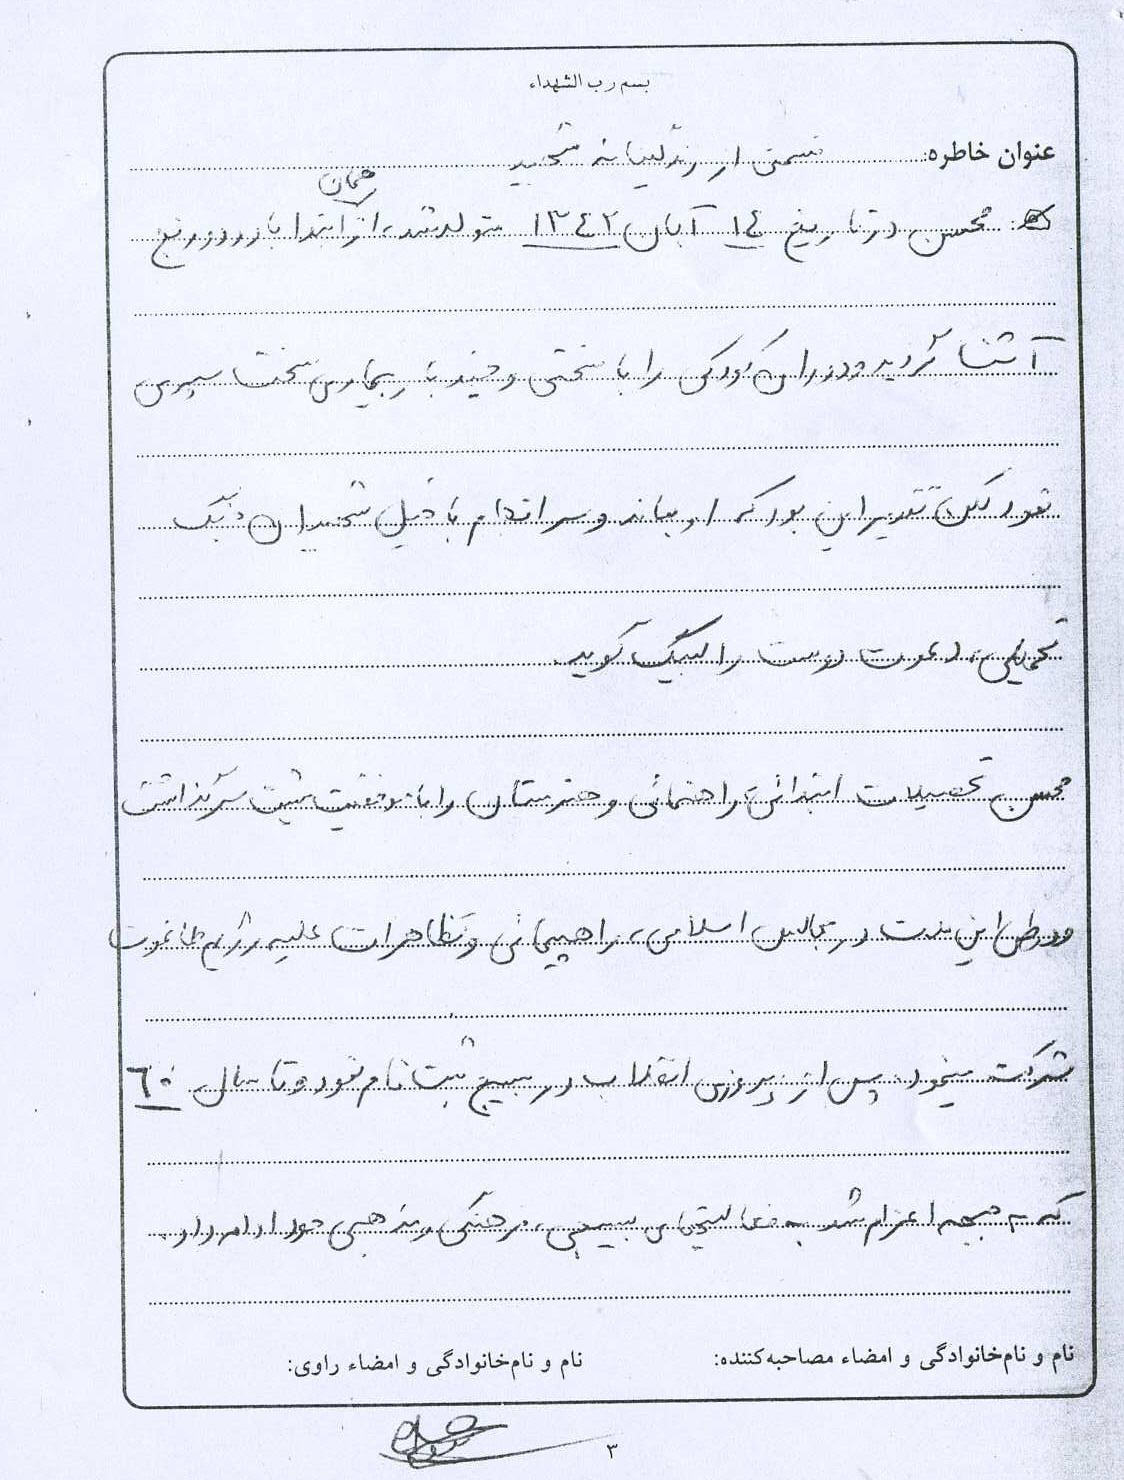 بسم رب الشهداء
عنوان خاطره: قسمتی از زندگینامه شهید
محسن در تاریخ ١٤ آبان ١٣٤٢ متولد شد، از همان ابتدا با درد و رنج
آشنا گردید و دوران کودکی را با سختی و چند بار بیماری سخت سپری
نمود لکن تقدیر این بود که او بماند و سرانجام با خیل شهیدان جنگ
تحمیلی، دعوت دوست را لبیک گوید.
محسن تحصیلات ابتدائی، راهنمائی و هنرستان را با موفقیت پشت سر گذاشت
و در طی این مدت در مجالس اسلامی، راهپیمائی و تظاهرات علیه رژیم طاغوت
شرکت مینمود. پس از پیروزی انقلاب در بسیج ثبت نام نمود و تا سال ٦٠
که به جبهه اعزام شد به فعالیتهای بسیجی، فرهنگی و مذهبی خود ادامه داد.
نام و نام‌خانوادگی و امضاء مصاحبه‌کننده: نام و نام‌خانوادگی و امضاء راوی:
٣